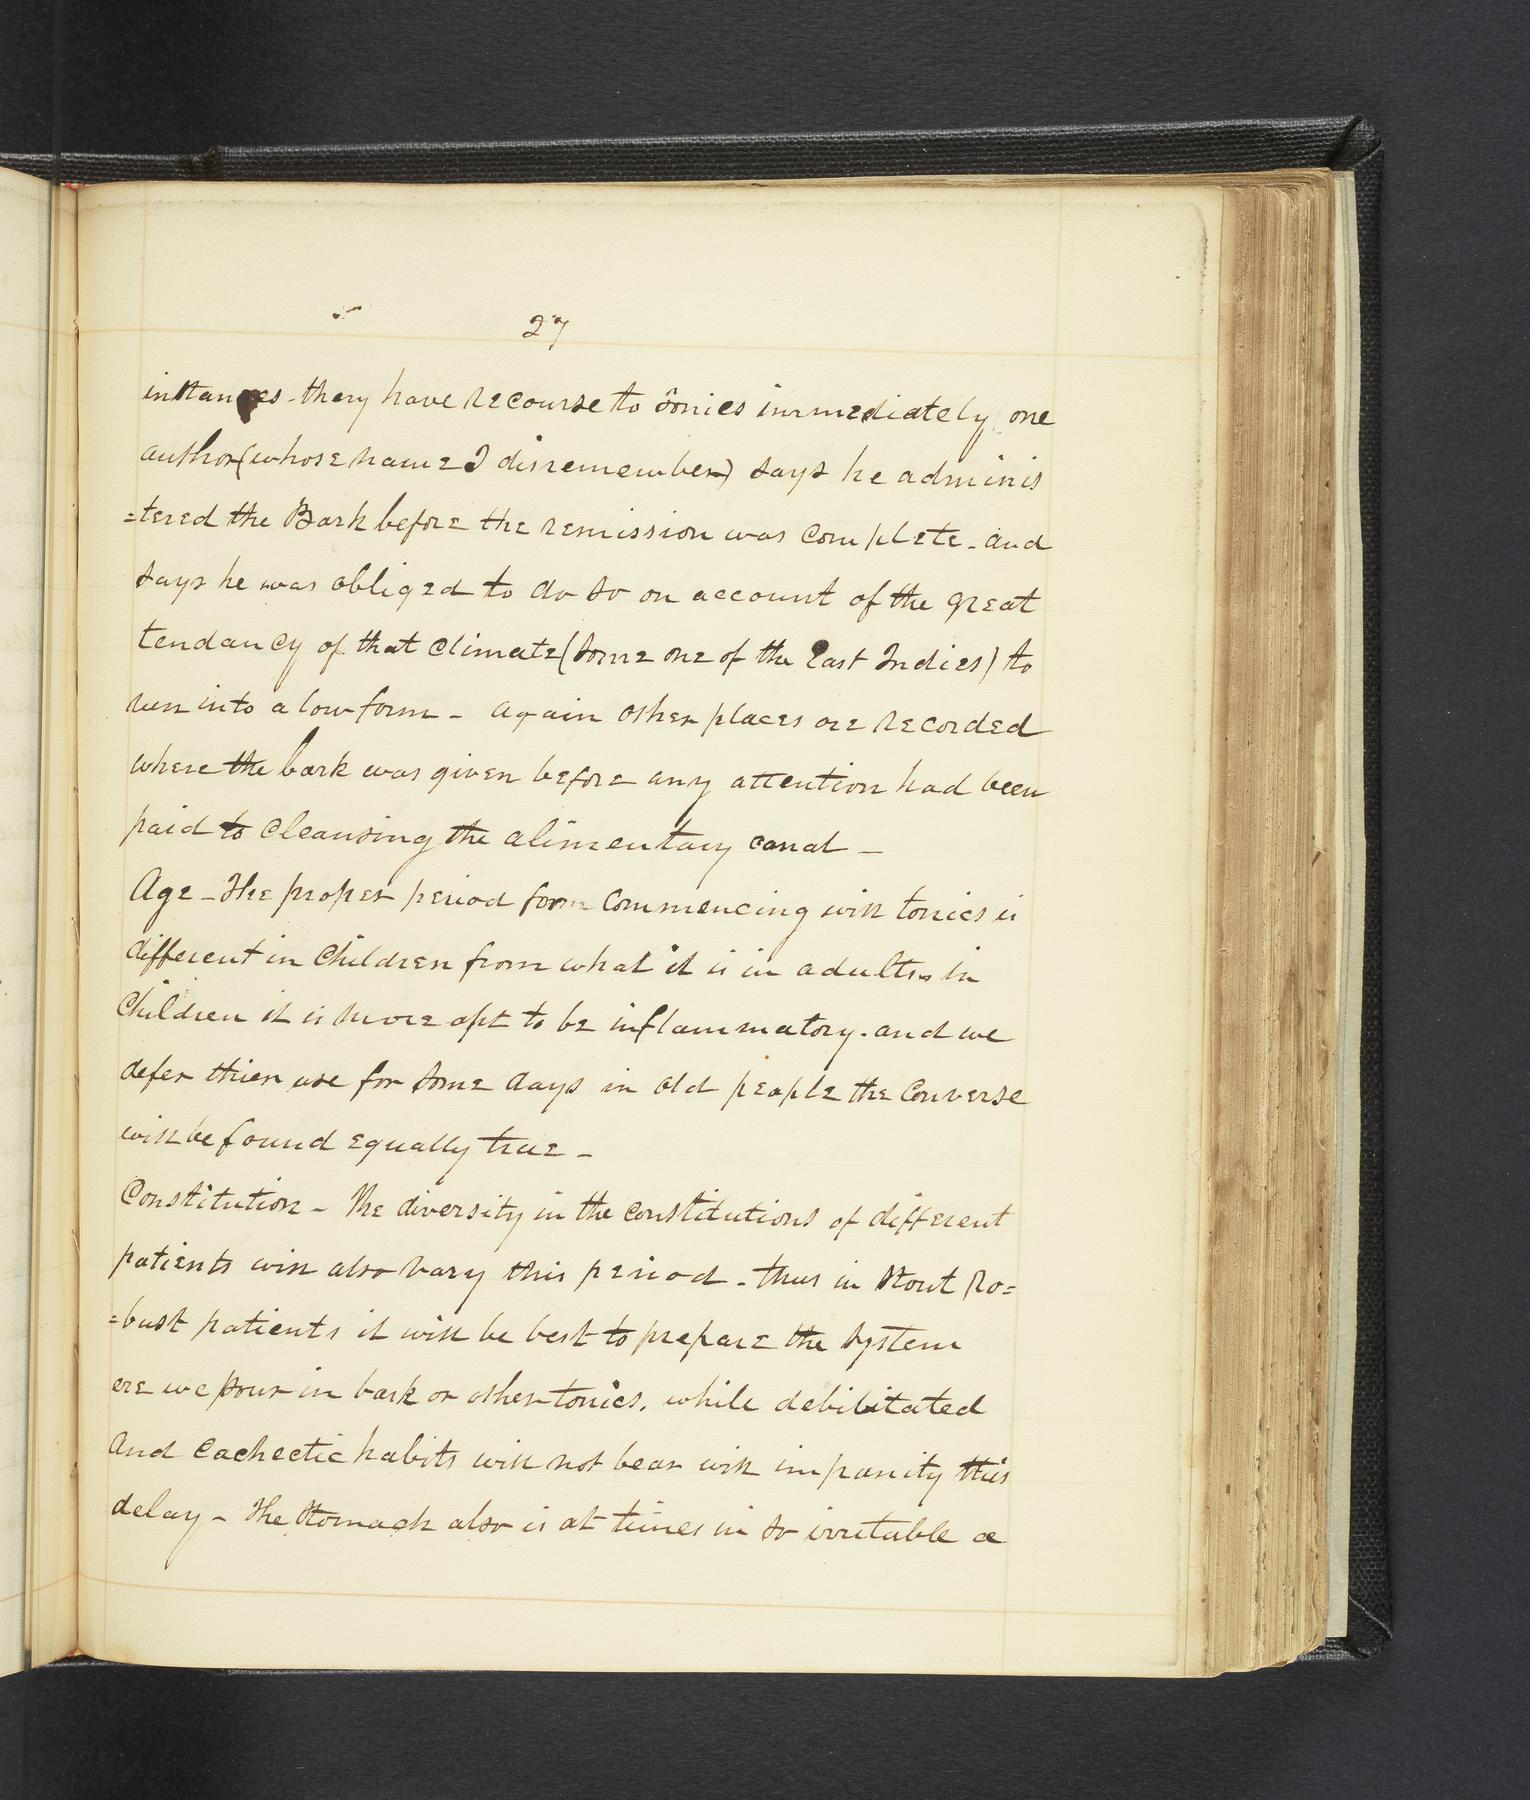 27
instances - they have recourse to tonics immediately one
author (whose name I disremember) says he adminis
=tered the Bark before the remission was complete - and
says he was obliged to do so on account of the great
tendancy of that Climate (some one of the East Indies) to
run into a low form - again other places are recorded
where the bark was given before any attention had been
paid to cleansing the alimentary canal -
Age - The proper period for commencing with tonics is
different in Children from what it is in adults. in
Children it is more apt to be inflammatory. and we
defer thier use for some days in old people the Converse
will be found equally true -
Constitution - The diversity in the constitutions of different
patients will also vary this period - thus in stout Ro=
=bust patients it will be best to prepare the system
ere we pour in bark or other tonics. while debilitated
and cachectic habits will not bear with impunity this
delay - The stomach also is at times in so irritable a